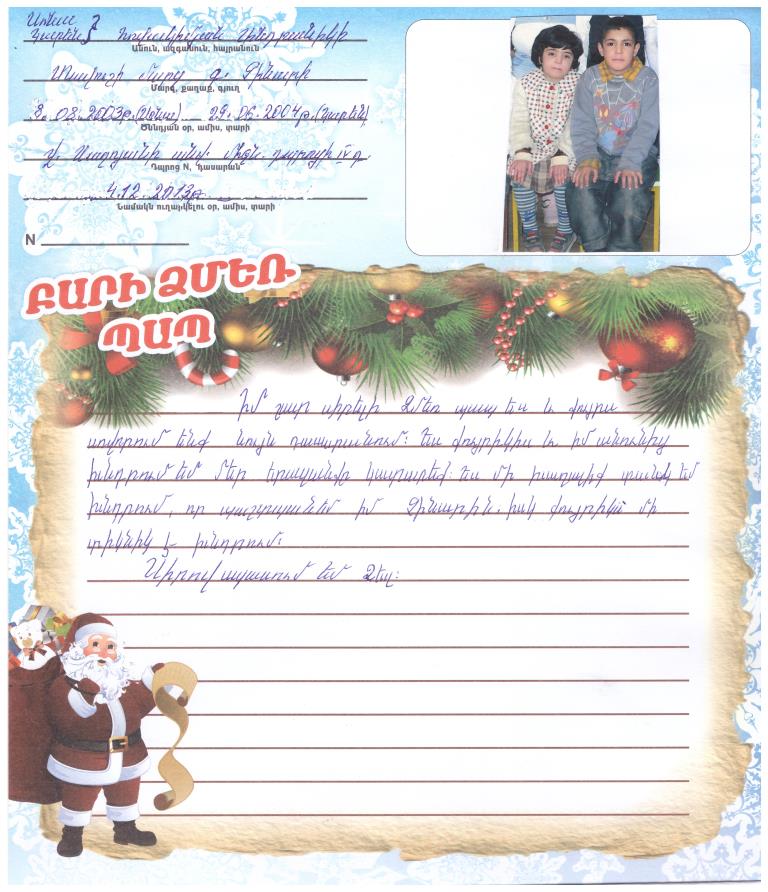 Աննա
Կարեն
Անուն, ազգանուն, հայրանուն
Մարզ, քաղաք, գյուղ
8.08.2003թ.(Աննա) 29.06.2004թ.(Կարեն)
Ծննդյան օր, ամիս, տարի
Դպրոց N, Դասարան
4.12.2013թ
Նամակն ուղարկելու օր, ամիս, տարի
N
ԲԱՐԻ ՁՄԵՌ
ՊԱՊ
Իմ շատ սիրելի Ձմեռ պապ ես և քույրս
սովորում ենք նույն դասարանում: Ես քույրիկիս և իմ անունից
խնդրում եմ մեր երազանքը կատարեք: Ես մի խաղալիք տանկ եմ
խնդրում, որ պաշտպանեմ իմ Չինարին. իսկ քույրիկս մի
տիկնիկ է խնդրում:
Սիրով սպասում եմ Ձեզ: